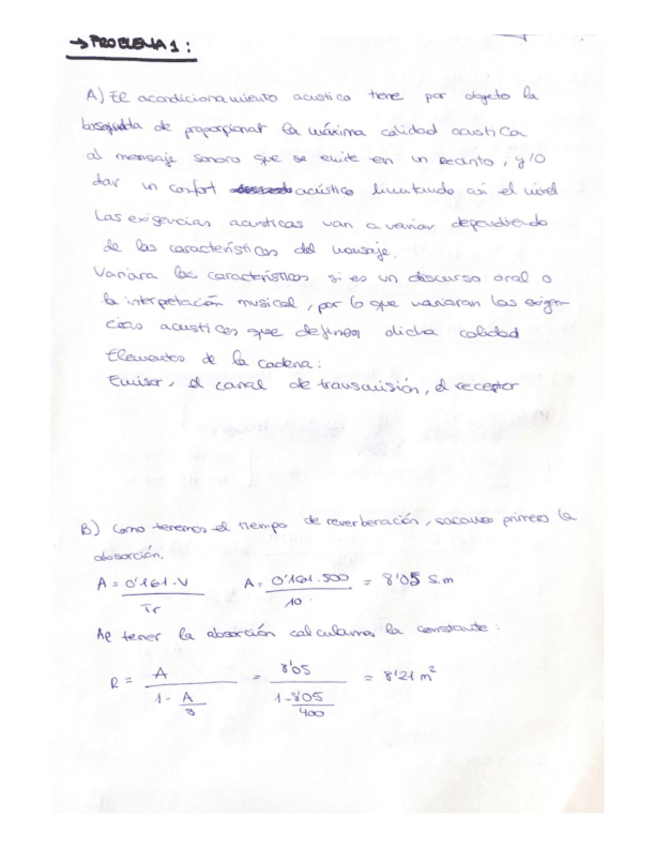 → PROBLEMA 1:
A) El acondicionamiento acustico tiene por objeto la
busqueda de proporcionar la máxima calidad acustica
al mensaje sonoro que se emite en un recinto, y/o
dar un confort acústico limitando así el nivel
Las exigencias acusticas van a variar dependiendo
de las características del mensaje.
Variara las características si es un discurso oral o
la interpretación musical, por lo que variaran las exigen
cias acusticas que definen dicha calidad
Elementos de la cadena:
Emisor, el canal de transmisión, el receptor
B) Como tenemos el tiempo de reverberación, sacamos primero la
absorción.
A = 0'161·V / Tr A = 0'161·500 / 10 = 8'05 S.m
Al tener la absorción calculamos la constante:
R = A / 1 - A/S = 8'05 / 1 - 8'05/400 = 8'21 m²